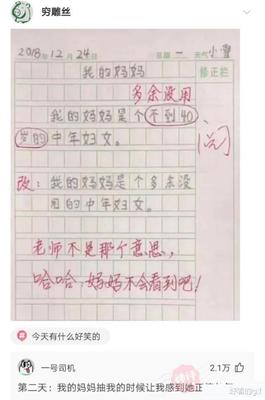 穷雕丝
2018年12月24日 星期一 天气小雪
修正栏
我的妈妈
多余没用
我的妈妈是个不到40
岁的中年妇女。
阅
改:我的妈妈是个多余没
用的中年妇女。
老师不是那个意思,
哈哈,妈妈不会看到吧!
今天有什么好笑的
一号司机
2.1万
第二天:我的妈妈抽我的时候让我感到她正